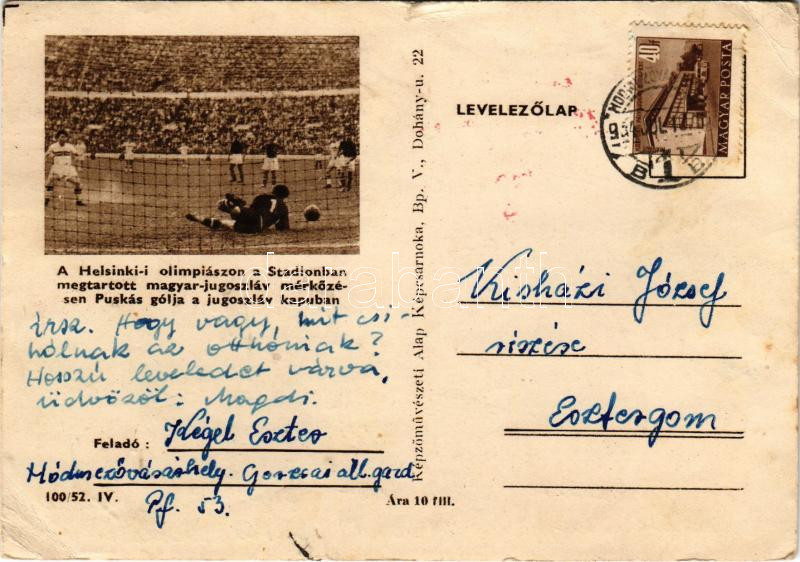 A Helsinki-i olimpiászon a Stadionban
megtartott magyar-jugoszláv mérkőzé-
sen Puskás gólja a jugoszláv kapuban
írsz. Hogy vagy, mit csi-
nálnak az otthoniak?
Hosszú leveledet várva,
üdvözöl: Magdi.
Feladó: Kégel Eszter
Hódmezővásárhely. Gorzsai áll. gazd.
Pf. 53.
100/52. IV.
Ára 10 fill.
Képzőművészeti Alap Képcsarnoka, Bp. V., Dohány-u. 22
LEVELEZŐLAP
40f
MAGYAR POSTA
Kisházi József
részére
Esztergom